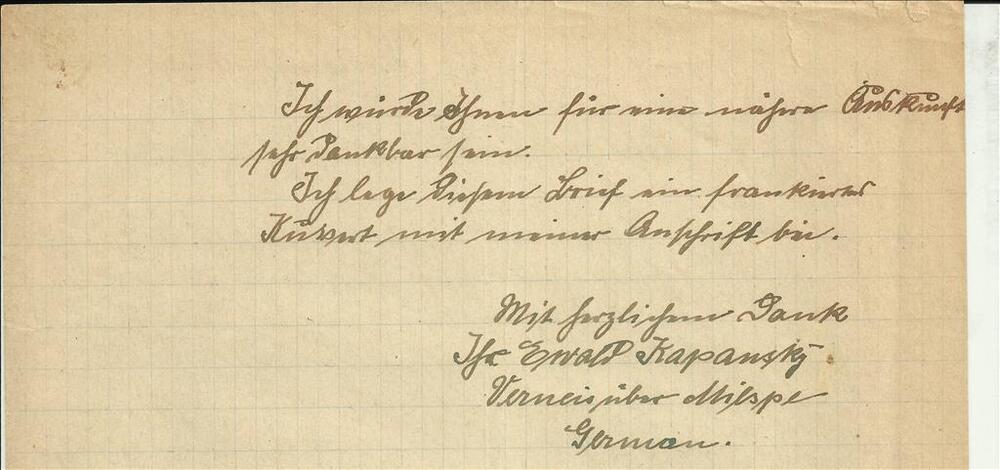 Ich würde Ihnen für eine nähere Auskunft
sehr Dankbar sein.
Ich lege Diesem Brief ein frankiertes
Kuvert mit meiner Anschrift bei.
Mit herzlichem Dank
Ihr Ewald Kapansky
Verneis über Milspe
German.